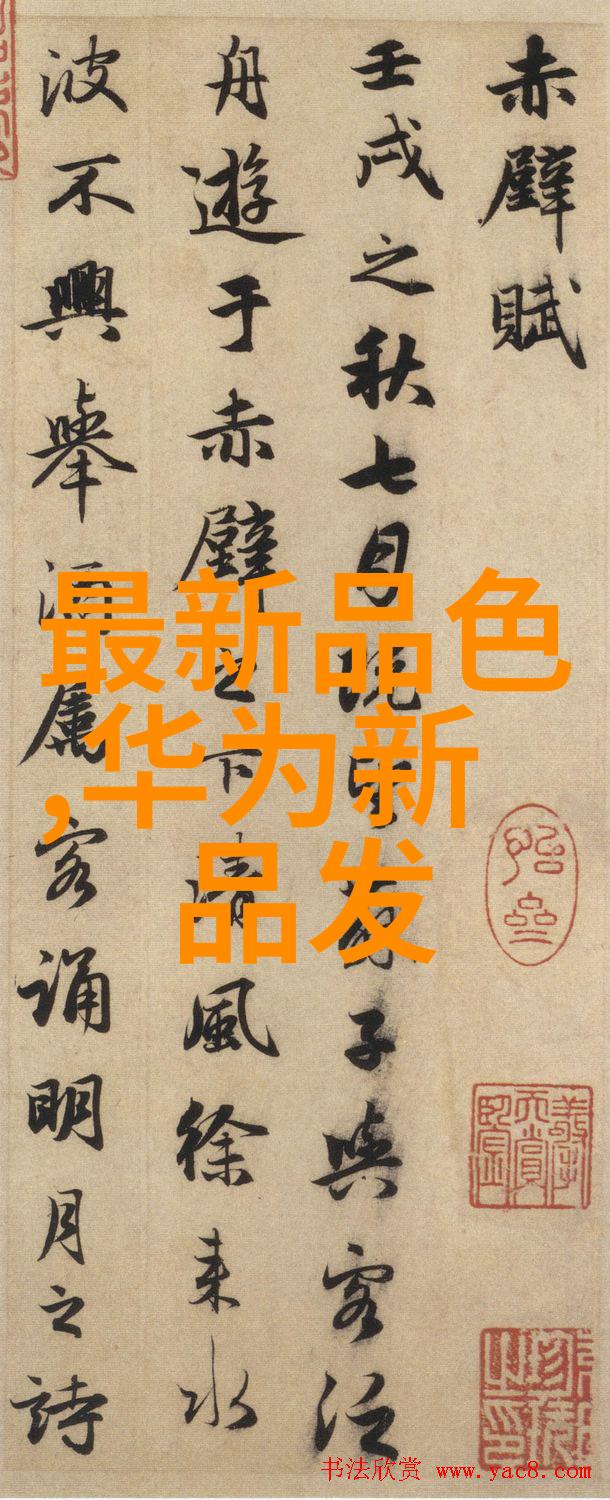 赤壁賦
壬戌之秋七月既望蘇子與客泛
舟遊于赤壁之下清風徐来水
波不興舉酒屬客誦明月之詩
最新品色
,华为新
品发
书法欣赏 www.yac8.com